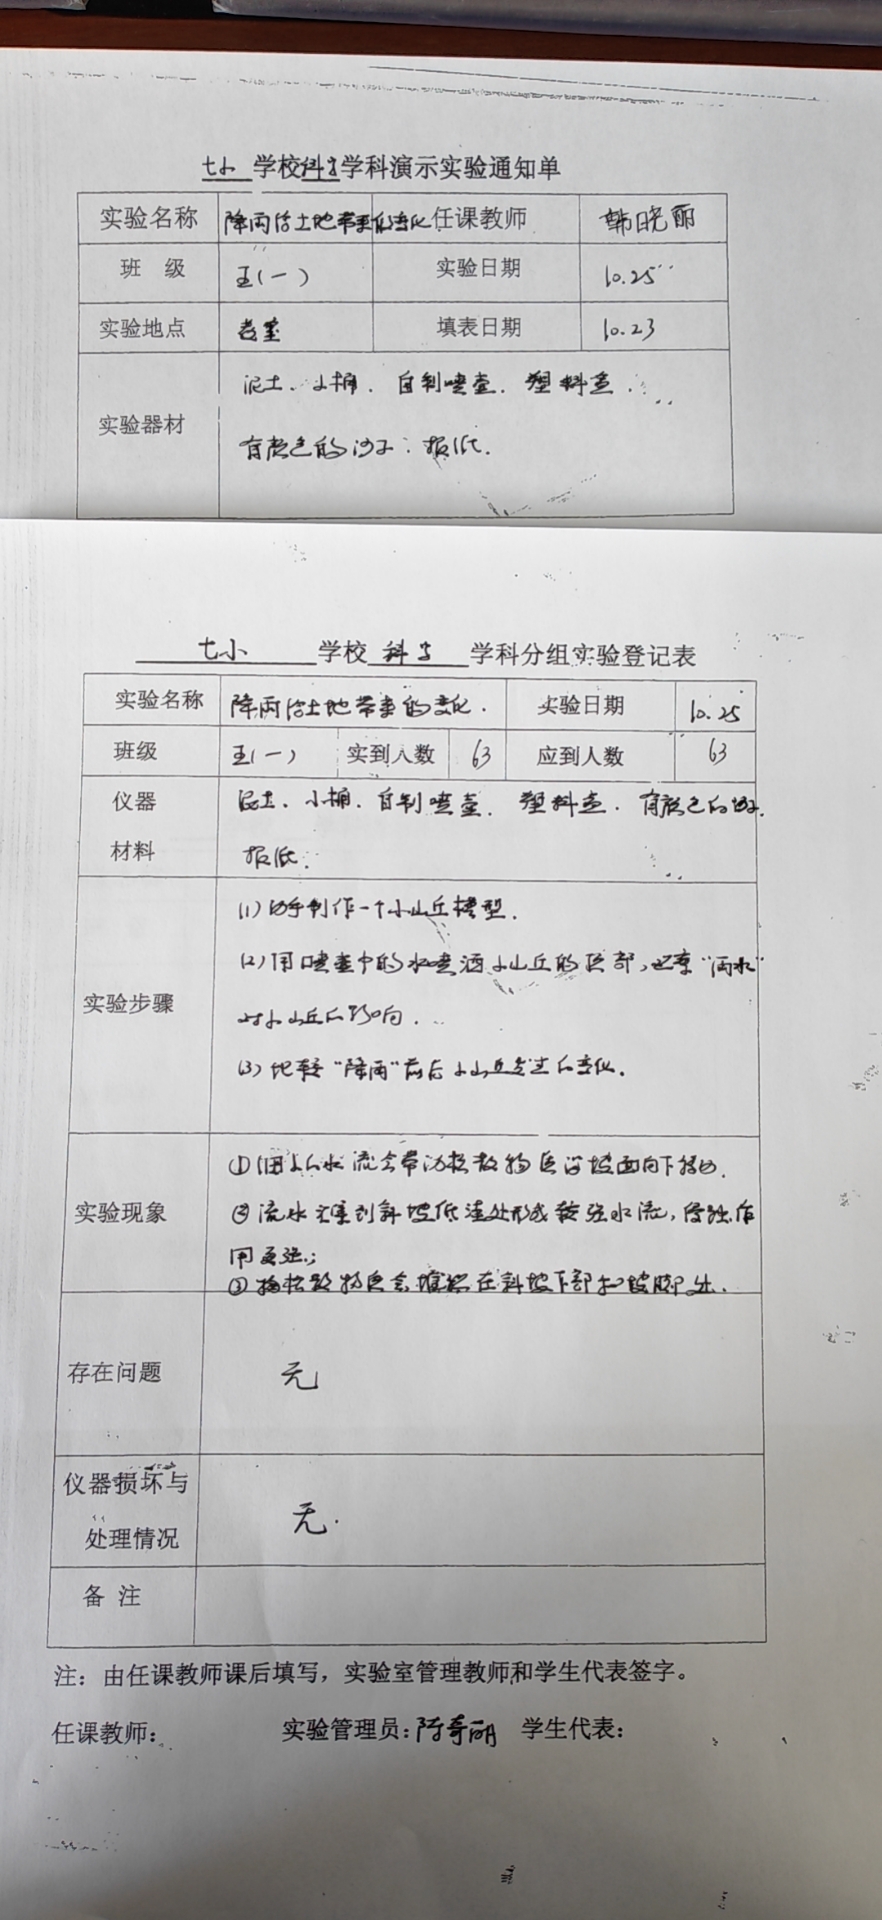 七小 学校科学学科演示实验通知单
实验名称 降雨给土地带来的变化 任课教师 韩晓丽
班 级 五(一) 实验日期 10.25
实验地点 教室 填表日期 10.23
泥土、小桶、自制喷壶、塑料盒、
实验器材
有颜色的沙子、报纸.
七小 学校 科学 学科分组实验登记表
实验名称 降雨给土地带来的变化. 实验日期 10.25
班级 五(一) 实到人数 63 应到人数 63
仪器 泥土、小桶、自制喷壶、塑料盒、有颜色的沙子.
材料 报纸.
(1) 动手制作一个小山丘模型.
(2) 用喷壶中的水喷洒小山丘的顶部, 观察"雨水"
实验步骤
对小山丘的影响.
(3) 比较"降雨"前后小山丘发生的变化.
① 水流会带动松散物质沿坡面向下移动.
实验现象 ② 流水汇集到斜坡低洼处形成较强水流, 侵蚀作
用更强;
③ 松散物质会堆积在斜坡下部和坡脚处.
存在问题 无
仪器损坏与
无.
处理情况
备 注
注：由任课教师课后填写，实验室管理教师和学生代表签字。
任课教师： 实验管理员：陈奇丽 学生代表：